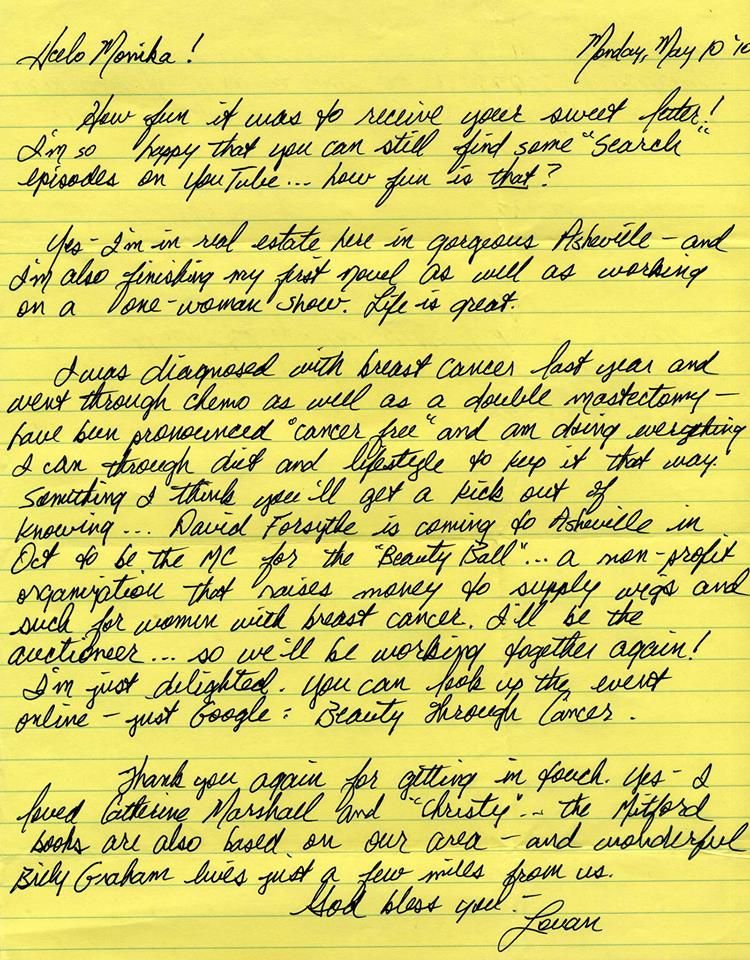 Hello Monika! Monday, May 10 '10
How fun it was to receive your sweet letter!
I'm so happy that you can still find some "Search"
episodes on YouTube... how fun is that?
Yes - I'm in real estate here in gorgeous Asheville - and
I'm also finishing my first novel as well as working
on a one-woman show. Life is great.
I was diagnosed with breast cancer last year and
went through chemo as well as a double mastectomy -
have been pronounced "cancer free" and am doing everything
I can through diet and lifestyle to keep it that way.
Something I think you'll get a kick out of
knowing... David Forsythe is coming to Asheville in
Oct to be the MC for the "Beauty Ball"... a non-profit
organization that raises money to supply wigs and
such for women with breast cancer. I'll be the
auctioneer... so we'll be working together again!
I'm just delighted. You can look up the event
online - just Google: Beauty Through Cancer.
Thank you again for getting in touch. Yes - I
loved Catherine Marshall and "Christy"... the Mitford
books are also based on our area - and wonderful
Billy Graham lives just a few miles from us.
God bless you -
Lovan